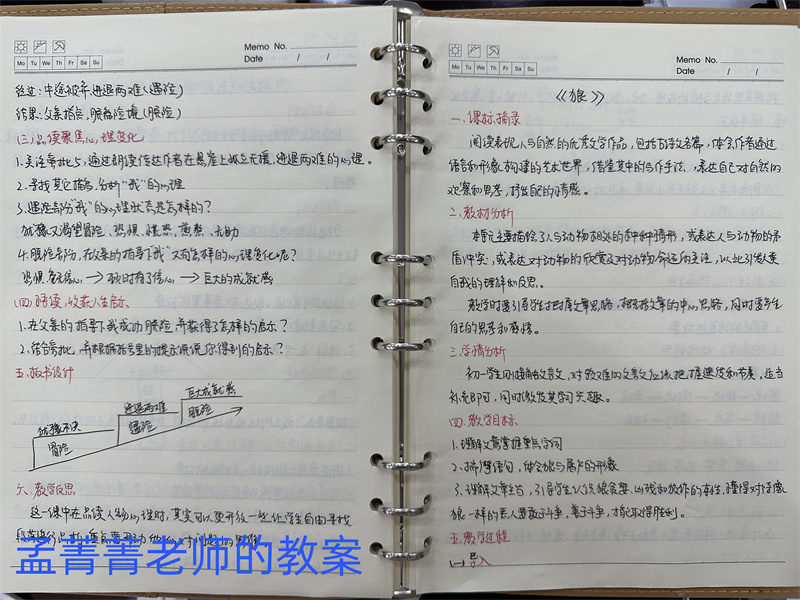 Memo No.
Mo Tu We Th Fr Sa Su
Date / /
经过:中途被弃,进退两难(遇险)
结果:父亲指点,脱离险境(脱险)
(三)品读聚焦心理变化
1.关注旁批5,通过朗读传达作者在悬崖上孤立无援、进退两难的心理。
2.寻找其它描写,分析“我”的心理
3.遇险部分“我”的心理状态是怎样的?
犹豫又渴望冒险、恐惧、
4.脱险部分,在父亲的指导下“我”又有怎样的心理变化呢?
恐惧、信心→顿时有了信心→巨大的成就感
(四)研读,收获人生启示
1.在父亲的指导下我成功脱险,并获得了怎样的启示?
2.结合旁批,并根据的提示谈谈你得到的启示?
五.板书设计
犹豫不决
冒险
进退两难
遇险
巨大成就感
脱险
六.教学反思
这一课中在品读人物心理时,其实可以更开放一些,让学生自由寻找
孟菁菁老师的教案
Memo No.
Mo Tu We Th Fr Sa Su
Date / /
《狼》
一.课标摘录
阅读表现人与自然的优秀文学作品,包括古诗文名篇,体会作者通过
语言和形象构建的艺术世界,借鉴其中的写作手法,表达自己对自然的
观察和思考,抒发自己的情感。
二.教材分析
本单元主要描绘了人与动物相处的种种情形,或表达人与动物的矛
盾冲突,或表达对动物的欣赏及对动物命运的关注,以此引发人类
自我的理解和反思。
教学时要引导学生把握文章思路,概括文章的中心思路,同时要有学生
自己的思考和感悟。
三.学情分析
初一学生刚接触文言文,对较难的文言文应该把握速度和节奏,适当
补充即可,同时激发其学习兴趣。
四.教学目标
1.理解文意,掌握重点字词
2.揣摩语句,体会狼与屠户的形象
3.理解文章主旨,引导学生认识狼贪婪、凶残和狡诈的本性,懂得对待像
狼一样的恶人要敢于斗争,善于斗争,才能取得胜利。
五.教学过程
(一)导入